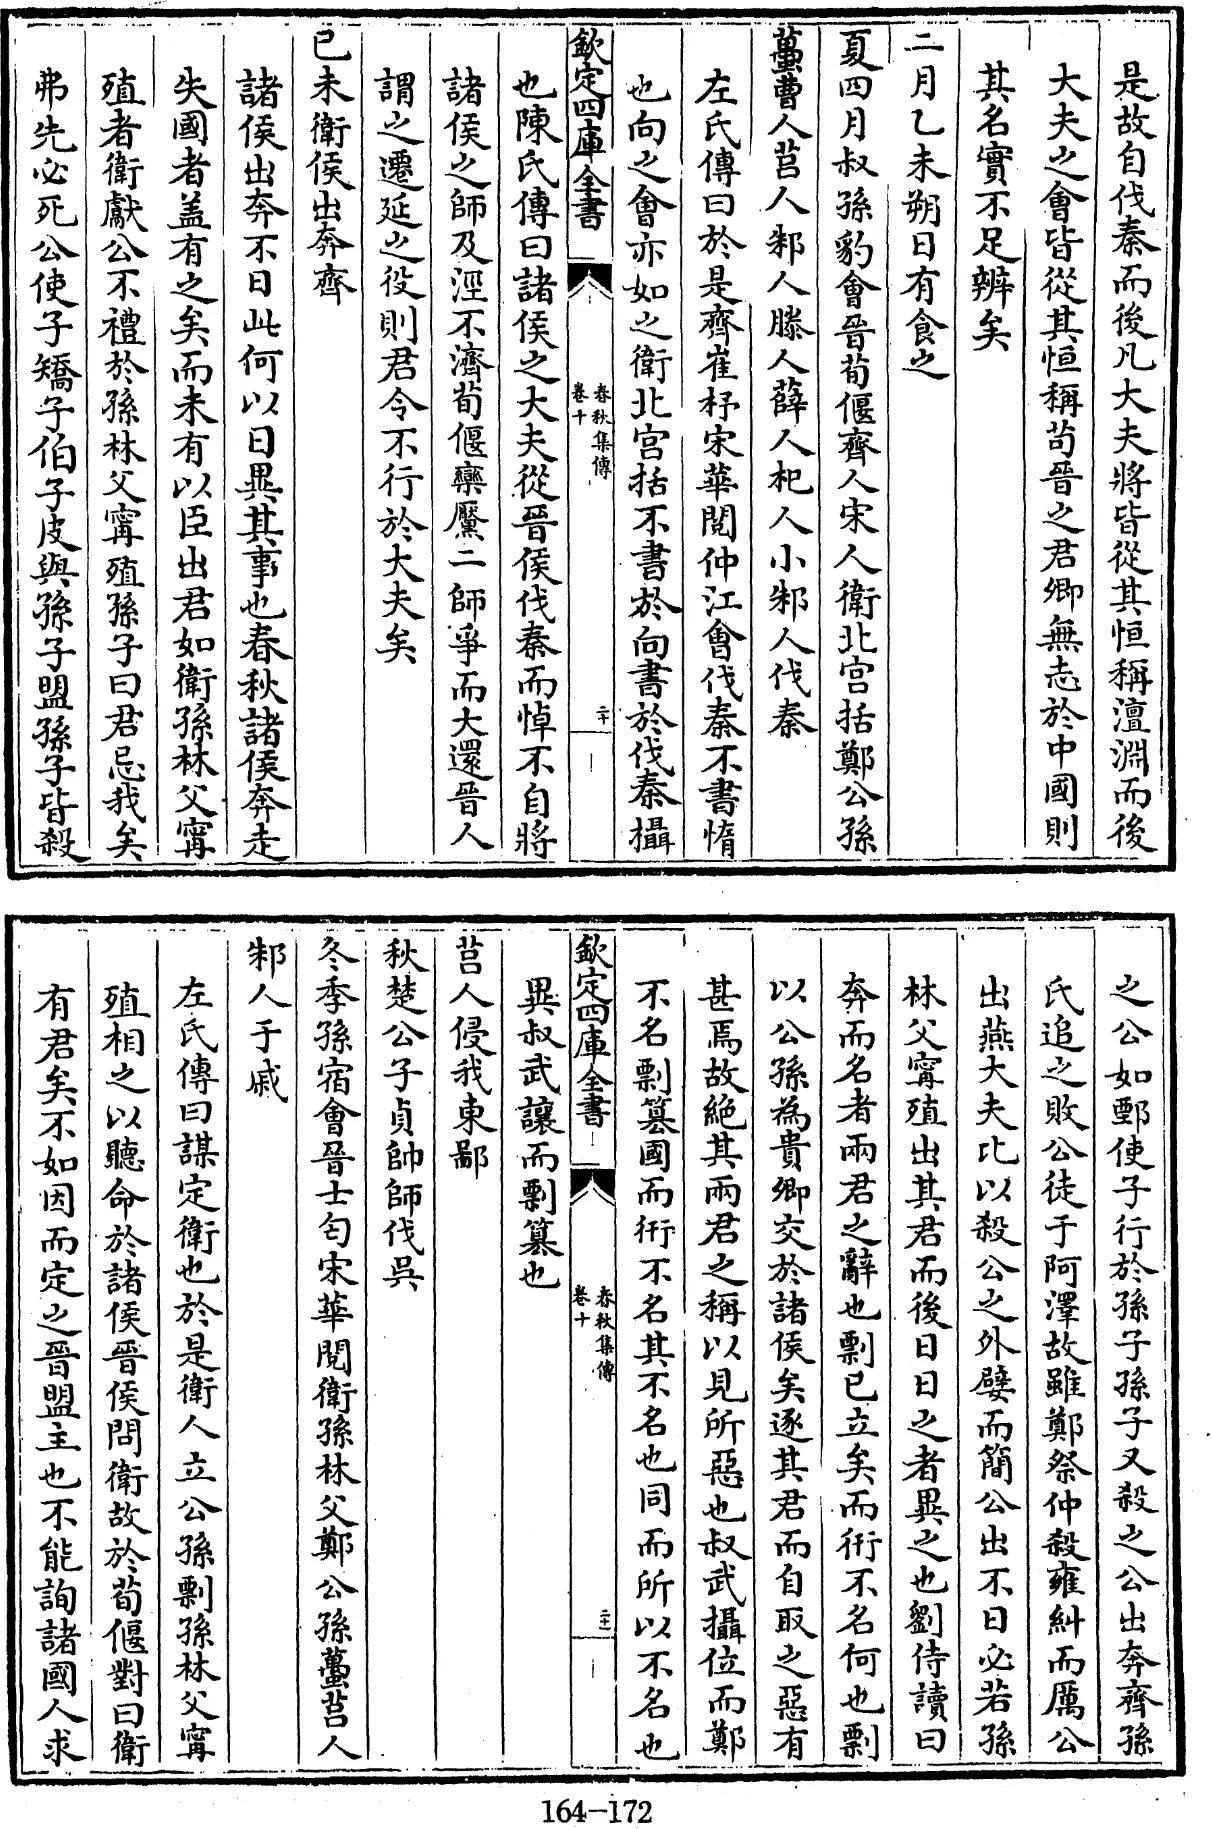 是故自伐秦而後凡大夫將皆從其恒稱澶淵而後
大夫之會皆從其恒稱苟晉之君卿無志於中國則
其名實不足辨矣
二月乙未朔日有食之
夏四月叔孫豹會晉荀偃齊人宋人衛北宮括鄭公孫
蠆曹人莒人邾人滕人薛人杞人小邾人伐秦
左氏傳曰於是齊崔杼宋華閱仲江會伐秦不書惰
也向之會亦如之衛北宮括不書於向書於伐秦攝
欽定四庫全書
春秋集傳
卷十
二十
也陳氏傳曰諸侯之大夫從晉侯伐秦而悼不自將
諸侯之師及涇不濟荀偃欒黶二師爭而大還晉人
謂之遷延之役則君令不行於大夫矣
已未衛侯出奔齊
諸侯出奔不日此何以日異其事也春秋諸侯奔走
失國者盖有之矣而未有以臣出君如衛孫林父甯
殖者衛獻公不禮於孫林父甯殖孫子曰君忌我矣
弗先必死公使子矯子伯子皮與孫子盟孫子皆殺
之公如鄄使子行於孫子孫子又殺之公出奔齊孫
氏追之敗公徒于阿澤故雖鄭祭仲殺雍糾而厲公
出燕大夫比以殺公之外嬖而簡公出不日必若孫
林父甯殖出其君而後日日之者異之也劉侍讀曰
奔而名者兩君之辭也剽已立矣而衎不名何也剽
以公孫為貴卿交於諸侯矣逐其君而自取之惡有
甚焉故絶其兩君之稱以見所惡也叔武攝位而鄭
不名剽簒國而衎不名其不名也同而所以不名也
欽定四庫全書
春秋集傳
卷十
二十一
異叔武讓而剽簒也
莒人侵我東鄙
秋楚公子貞帥師伐吳
冬季孫宿會晉士匄宋華閱衛孫林父鄭公孫蠆莒人
邾人于戚
左氏傳曰謀定衛也於是衛人立公孫剽孫林父甯
殖相之以聽命於諸侯晉侯問衛故於荀偃對曰衛
有君矣不如因而定之晉盟主也不能詢諸國人求
164-172